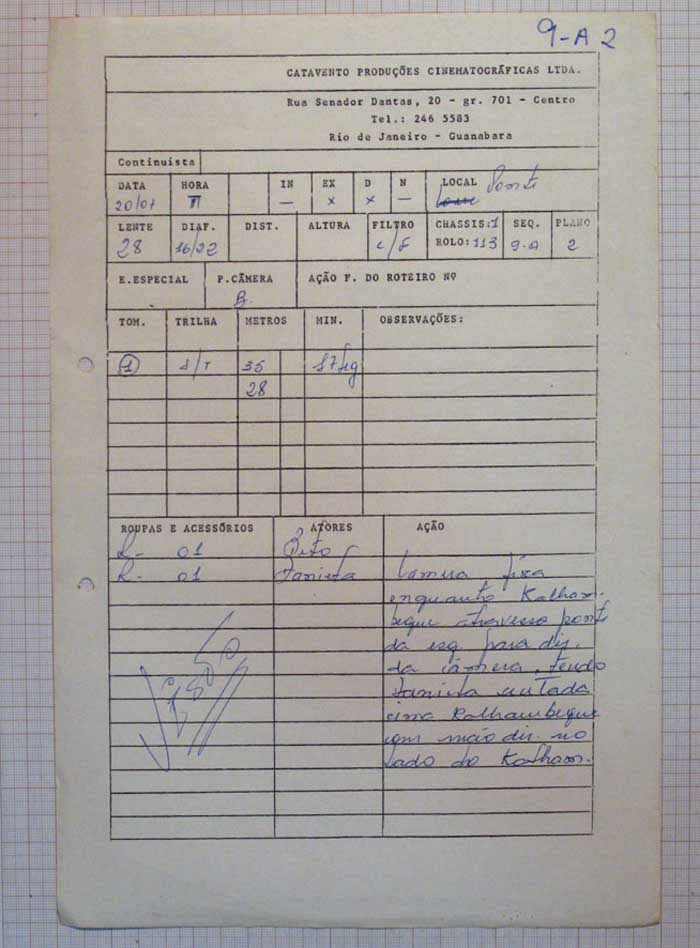 9-A 2
CATAVENTO PRODUÇÕES CINEMATOGRÁFICAS LTDA.
Rua Senador Dantas, 20 - gr. 701 - Centro
Tel.: 246 5583
Rio de Janeiro - Guanabara
Continuista
DATA HORA IN EX D N LOCAL Ponte
20/07 — x x —
LENTE DIAF. DIST. ALTURA FILTRO CHASSIS:1 SEQ. PLANO
28 16/22 c/F ROLO:113 9-A 2
E.ESPECIAL P.CÂMERA AÇÃO F. DO ROTEIRO Nº
B.
TOM. TRILHA METROS MIN. OBSERVAÇÕES:
1 s/T 35 17 seg
28
ROUPAS E ACESSÓRIOS ATORES AÇÃO
R- 01
R- 01 Camera fixa
enquanto Kalham-
beque atravessa ponte
da esq. para dir.
da câmera, tendo
cima Kalhambeque
com mão dir. no
lado do Kalham.